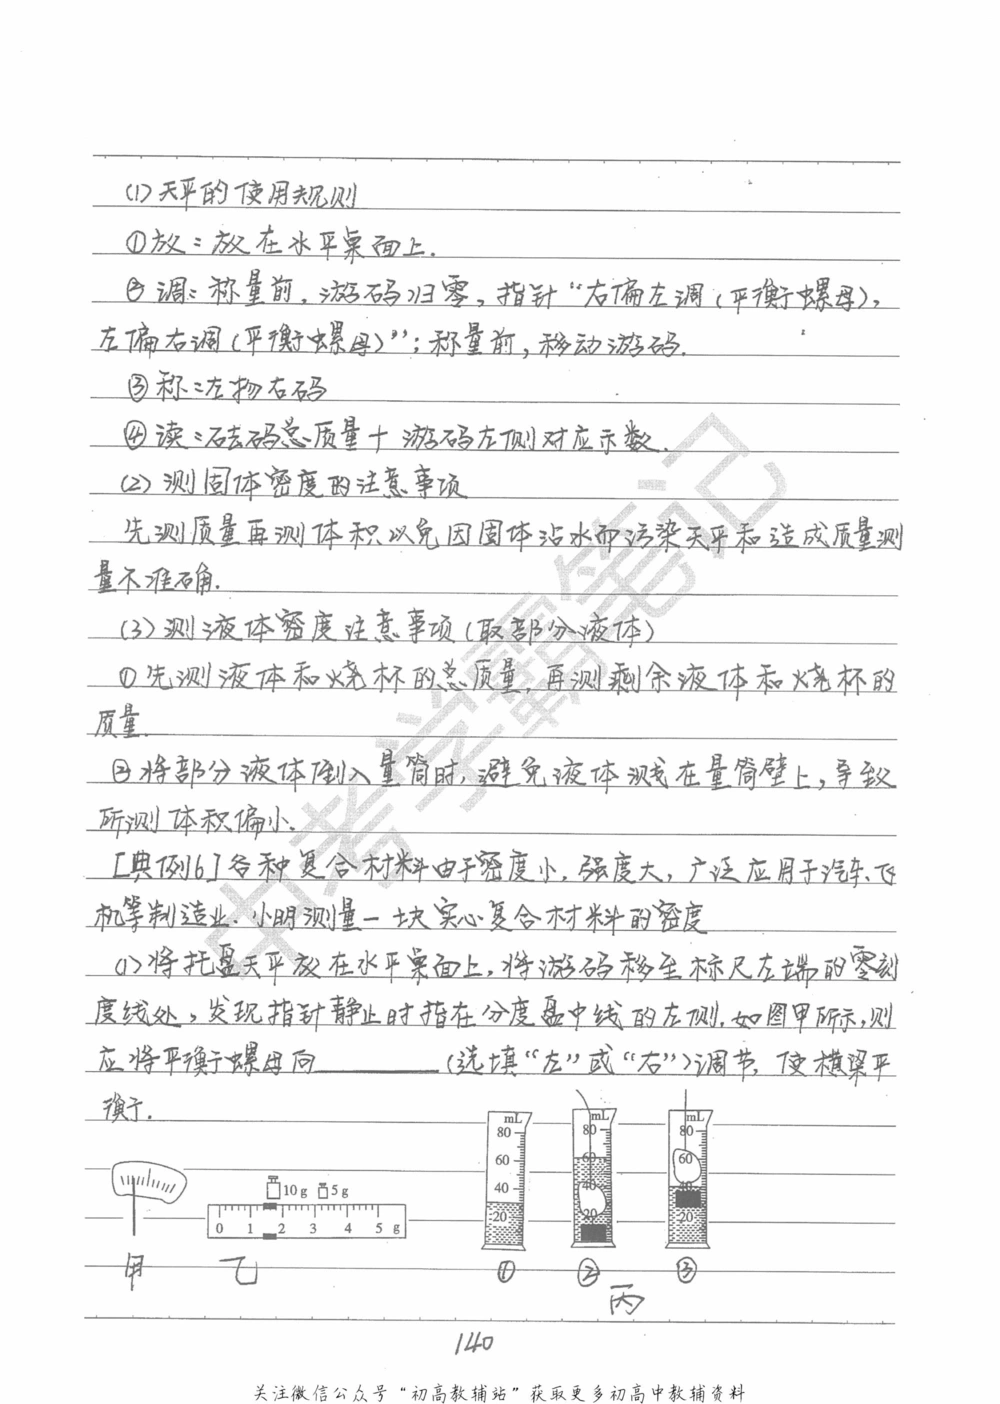 (1)天平的使用规则
①放:放在水平桌面上.
②调:称量前,游码归零,指针“右偏左调(平衡螺母),
左偏右调(平衡螺母)”;称量前,移动游码.
③称:左物右码
④读:砝码总质量+游码左侧对应示数.
(2)测固体密度的注意事项
先测质量再测体积以免因固体沾水而污染天平和造成质量测
量不准确.
(3)测液体密度注意事项(取部分液体)
①先测液体和烧杯的总质量,再测剩余液体和烧杯的
质量.
②将部分液体倒入量筒时,避免液体溅在量筒壁上,导致
所测体积偏小.
[典例6]各种复合材料由于密度小,强度大,广泛应用于汽车、飞
机等制造业.小明测量一块实心复合材料的密度
(1)将托盘天平放在水平桌面上,将游码移至标尺左端的零刻
度线处,发现指针静止时指在分度盘中线的左侧.如图甲所示,则
应将平衡螺母向________(选填“左”或“右”)调节,使横梁平
衡.
mL mL mL
80 80 80
60 60 60
40 40 40
20 20 20
10 g 5 g
0 1 2 3 4 5 g
甲 乙 ① ② ③
丙
140
中考学霸笔记
关注微信公众号“初高教辅站”获取更多初高中教辅资料